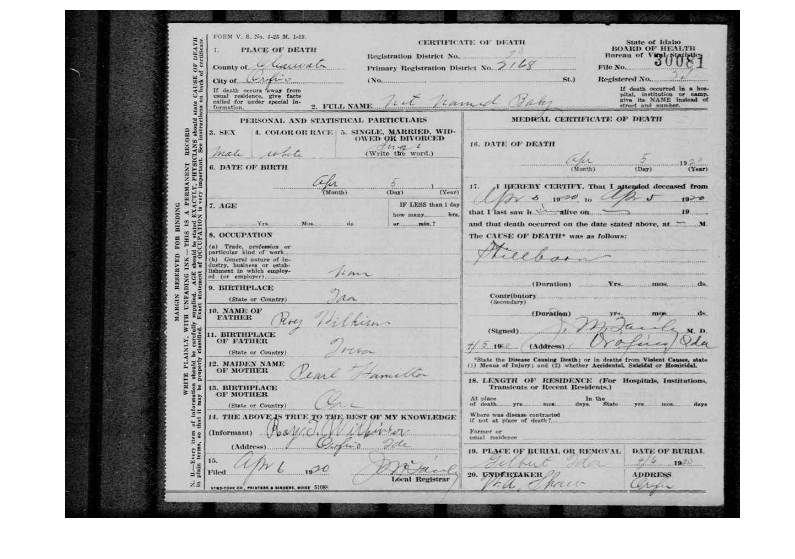 FORM V. S. No. 5-25 M. 1-19.
CERTIFICATE OF DEATH
State of Idaho
BOARD OF HEALTH
Bureau of Vital Statistics
1. PLACE OF DEATH
Registration District No.
File No. 30081
County of Clearwater
Primary Registration District No. 2168
Registered No.
City of Orofino
(No. St.)
If death occurs away from usual residence, give facts called for under special information.
If death occurred in a hospital, institution or camp, give its NAME instead of street and number.
2. FULL NAME Not Named Baby
PERSONAL AND STATISTICAL PARTICULARS
3. SEX
4. COLOR OR RACE
5. SINGLE, MARRIED, WIDOWED OR DIVORCED
Male
white
Single
(Write the word.)
6. DATE OF BIRTH
Apr 5
(Month) (Day) (Year)
7. AGE
IF LESS than 1 day
how many hrs.
or min.?
Yrs. Mos. ds
8. OCCUPATION
(a) Trade, profession or particular kind of work
(b) General nature of industry, business or establishment in which employed (or employer)
9. BIRTHPLACE
(State or Country) Ida
10. NAME OF FATHER Roy Wilkison
11. BIRTHPLACE OF FATHER
(State or Country) Iowa
12. MAIDEN NAME OF MOTHER Pearl Hamilton
13. BIRTHPLACE OF MOTHER
(State or Country) Ore
14. THE ABOVE IS TRUE TO THE BEST OF MY KNOWLEDGE
(Informant) Roy
(Address) Orofino Ida
15.
Filed Apr 6 1920
Local Registrar
SYMS-YORK CO., PRINTERS & BINDERS, BOISE 51088
MEDICAL CERTIFICATE OF DEATH
16. DATE OF DEATH
Apr 5 1920
(Month) (Day) (Year)
17. I HEREBY CERTIFY, That I attended deceased from
Apr 5 1920 to Apr 5 1920
that I last saw h alive on 19
and that death occurred on the date stated above, at M.
The CAUSE OF DEATH* was as follows:
Stillborn
(Duration) Yrs. mos. ds.
Contributory
(Secondary)
(Duration) Yrs. mos. ds.
(Signed) M. D.
4/5 1920 (Address) Orofino Ida
*State the Disease Causing Death; or in deaths from Violent Causes, state (1) Means of Injury; and (2) whether Accidental, Suicidal or Homicidal.
18. LENGTH OF RESIDENCE (For Hospitals, Institutions, Transients or Recent Residents.)
At place of death yrs mos. days. In the State yrs mos. days
Where was disease contracted if not at place of death?
Former or usual residence
19. PLACE OF BURIAL OR REMOVAL
DATE OF BURIAL
Gilbert Ida
4/6 1920
20. UNDERTAKER
ADDRESS
Orofino
MARGIN RESERVED FOR BINDING
WRITE PLAINLY, WITH UNFADING INK—THIS IS A PERMANENT RECORD
N. B.—Every item of information should be carefully supplied. AGE should be stated EXACTLY, PHYSICIANS should state CAUSE OF DEATH in plain terms, so that it may be properly classified. Exact statement of OCCUPATION is very important. See instructions on back of certificate.